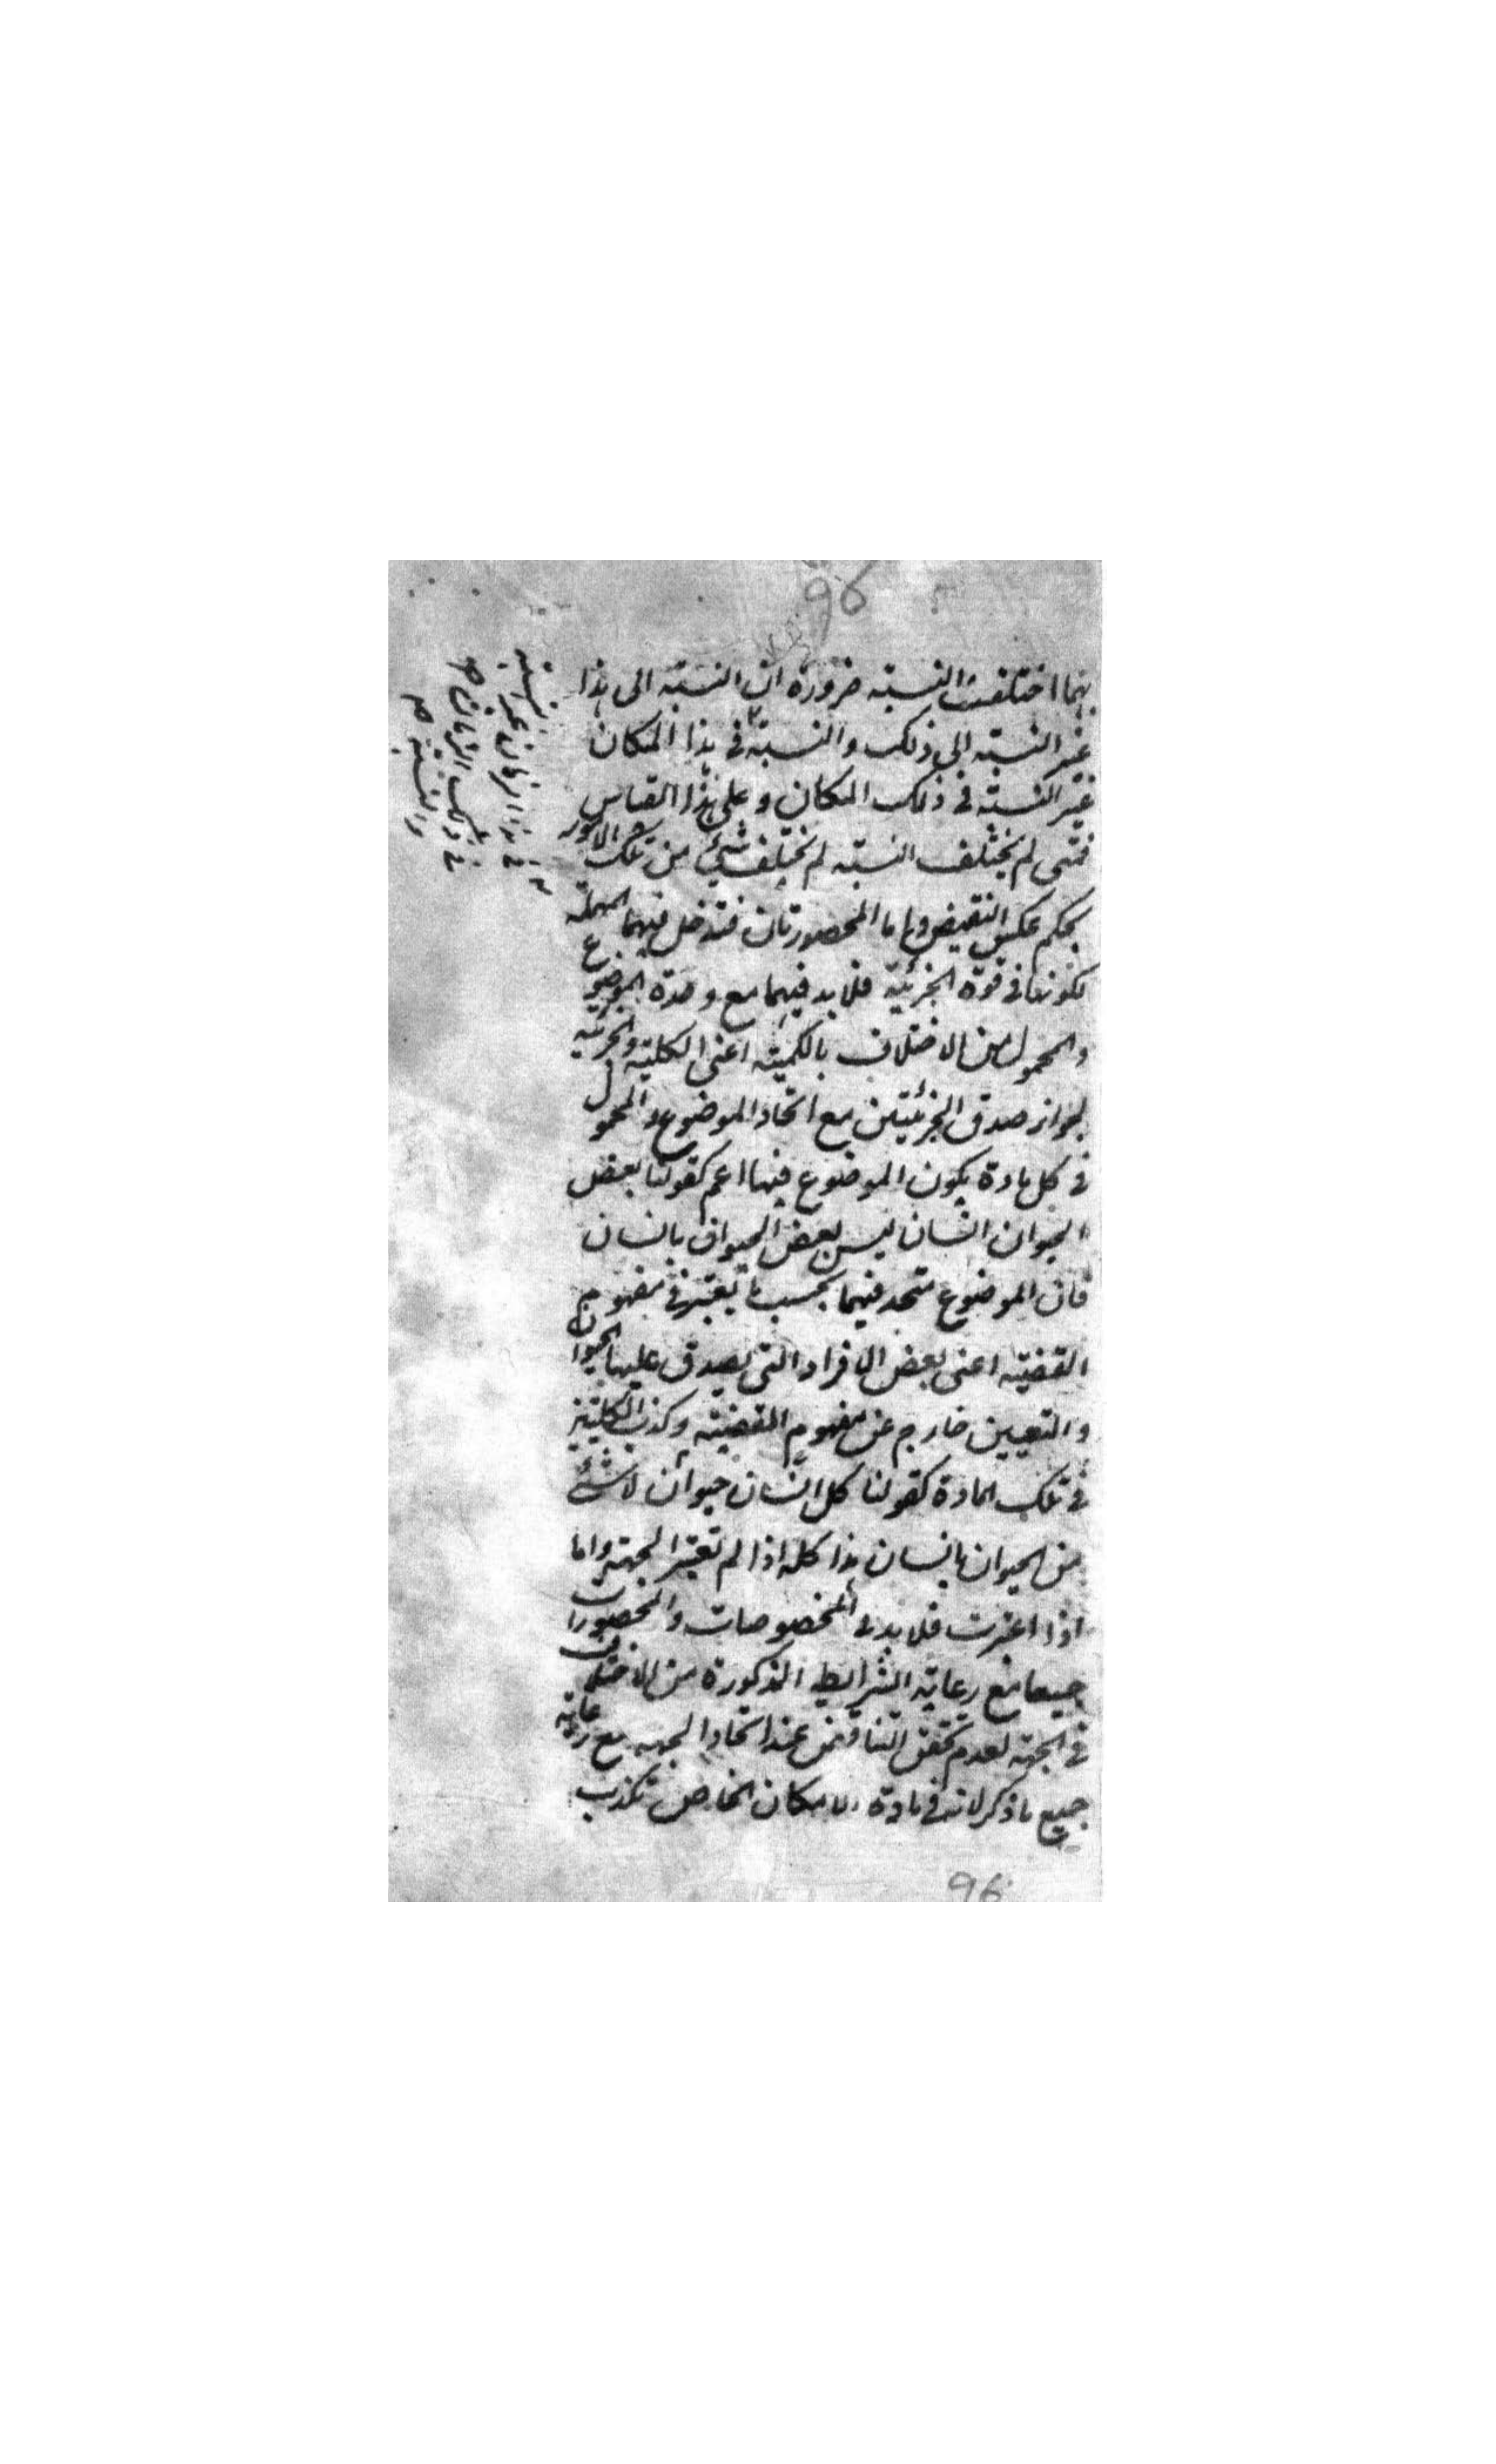 96
بهما اختلفت النسبة ضرورة ان النسبة الى هذا
غير النسبة الى ذلك والنسبة فى هذا المكان
غير النسبة فى ذلك المكان و على هذا القياس
فمتى لم يختلف النسبة لم يختلف شئ من تلك الامور
بحكم عكس النقيض واما المحصورتان فتدخل فيهما المهملة
لكونها فى قوة الجزئية فلا بد فيهما مع وحدة الموضوع
والمحمول من الاختلاف بالكمية اعنى الكلية والجزئية
لجواز صدق الجزئيتين مع اتحاد الموضوع والمحمول
فى كل مادة يكون الموضوع فيها اعم كقولنا بعض
الحيوان انسان ليس بعض الحيوان بانسان
فان الموضوع متحد فيهما بحسب ما يعتبر فى مفهوم
القضية اعنى بعض الافراد التى يصدق عليها الحيوان
والتعيين خارج عن مفهوم القضية وكذب الكليتين
فى تلك المادة كقولنا كل انسان حيوان لا شئ
من الحيوان بانسان هذا كله اذا لم تعتبر الجهة واما
اذا اعتبرت فلا بد فى المخصوصات والمحصورات
جميعا مع رعاية الشرايط المذكورة من الاختلاف
فى الجهة لعدم تحقق التناقض عند اتحاد الجهة مع رعاية
جميع ما ذكر لانه فى مادة الامكان الخاص تكذب
والنسبة
فى هذا الزمان غير النسبة
فى ذلك الزمان صح
96